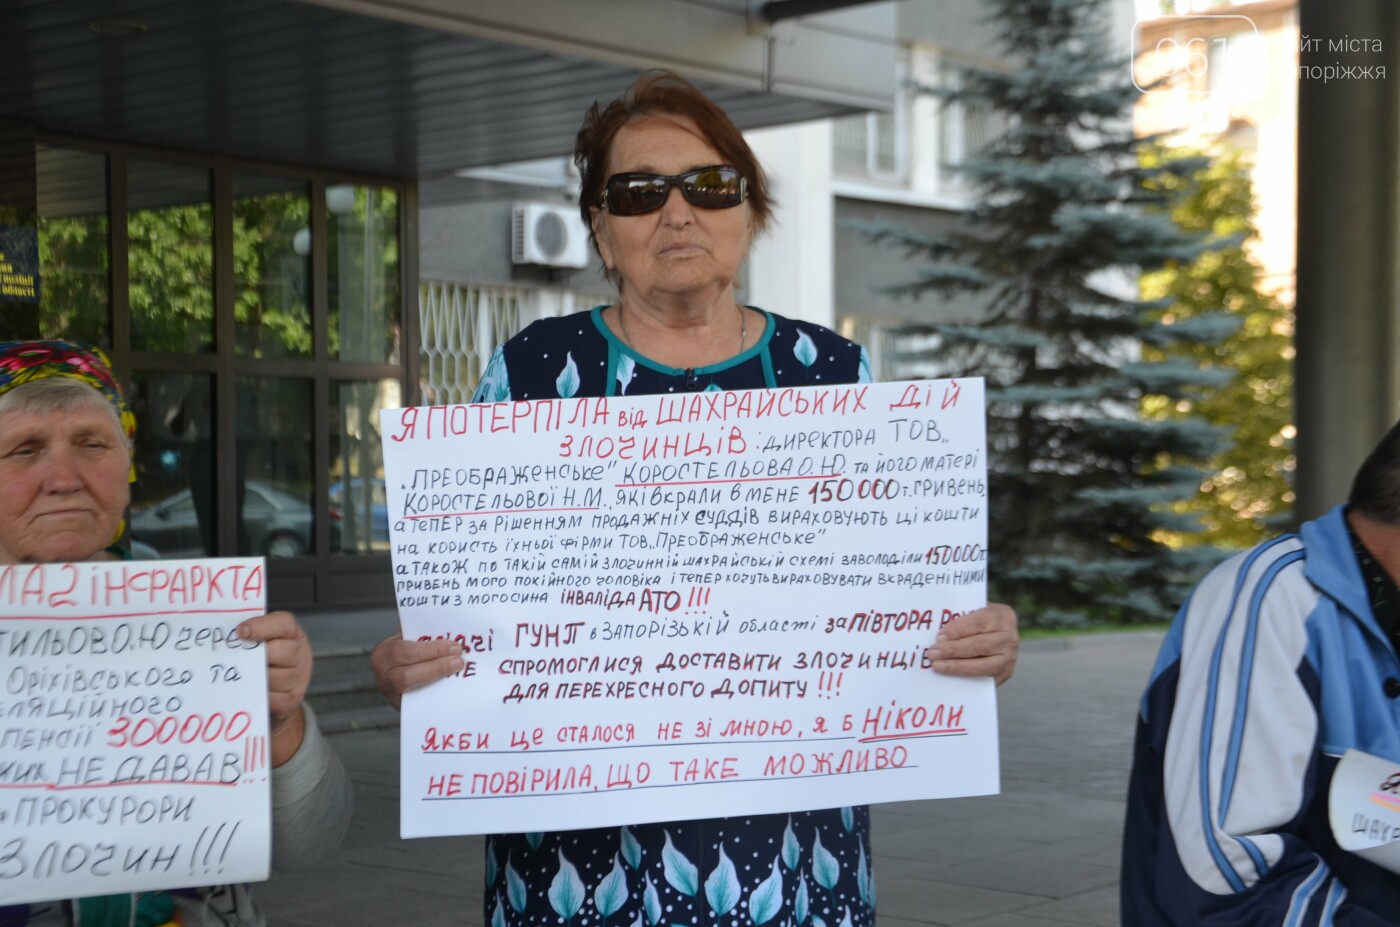 061
йт міста
поріжжя
Я ПОТЕРПІЛА від ШАХРАЙСЬКИХ ДІЙ
ЗЛОЧИНЦІВ: ДИРЕКТОРА ТОВ„
„ПРЕОБРАЖЕНСЬКЕ" КОРОСТЕЛЬОВА О.Ю. ТА ЙОГО МАТЕРІ
КОРОСТЕЛЬОВОЇ Н.М., ЯКІ ВКРАЛИ В МЕНЕ 150 000 т. ГРИВЕНЬ,
А ТЕПЕР ЗА РІШЕННЯМ ПРОДАЖНІХ СУДДІВ ВИРАХОВУЮТЬ ЦІ КОШТИ
НА КОРИСТЬ ЇХНЬОЇ ФІРМИ ТОВ„ПРЕОБРАЖЕНСЬКЕ"
А ТАКОЖ ПО ТАКІЙ САМІЙ ЗЛОЧИННІЙ ШАХРАЙСЬКІЙ СХЕМІ ЗАВОЛОДІЛИ 150000 т.
ГРИВЕНЬ МОГО ПОКІЙНОГО ЧОЛОВІКА І ТЕПЕР ХОЧУТЬ ВИРАХОВУВАТИ ВКРАДЕНІ НИМИ
КОШТИ З МОГО СИНА ІНВАЛІДА АТО!!!
ГУНП в ЗАПОРІЗЬКІЙ області за ПІВТОРА
НЕ СПРОМОГЛИСЯ ДОСТАВИТИ ЗЛОЧИНЦІВ
ДЛЯ ПЕРЕХРЕСНОГО ДОПИТУ!!!
ЯКБИ ЦЕ СТАЛОСЯ НЕ ЗІ МНОЮ, Я Б НІКОЛИ
НЕ ПОВІРИЛА, ЩО ТАКЕ МОЖЛИВО
ЛА 2 ІНФАРКТА
ТИЛЬОВ О.Ю ЧЕРЕЗ
ОРІХІВСЬКОГО ТА
ЕЛЯЦІЙНОГО
ПЕНСІЇ 300000
НЕ ДАВАВ!!!
ПРОКУРОРИ
ЗЛОЧИН!!!
області